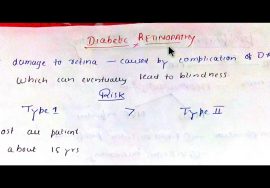 Diabetic RETINOPATHY
damage to retina — caused by complication of D
which can eventually lead to blindness
Risk
Type I > Type II
ost all patient
about 15 yrs